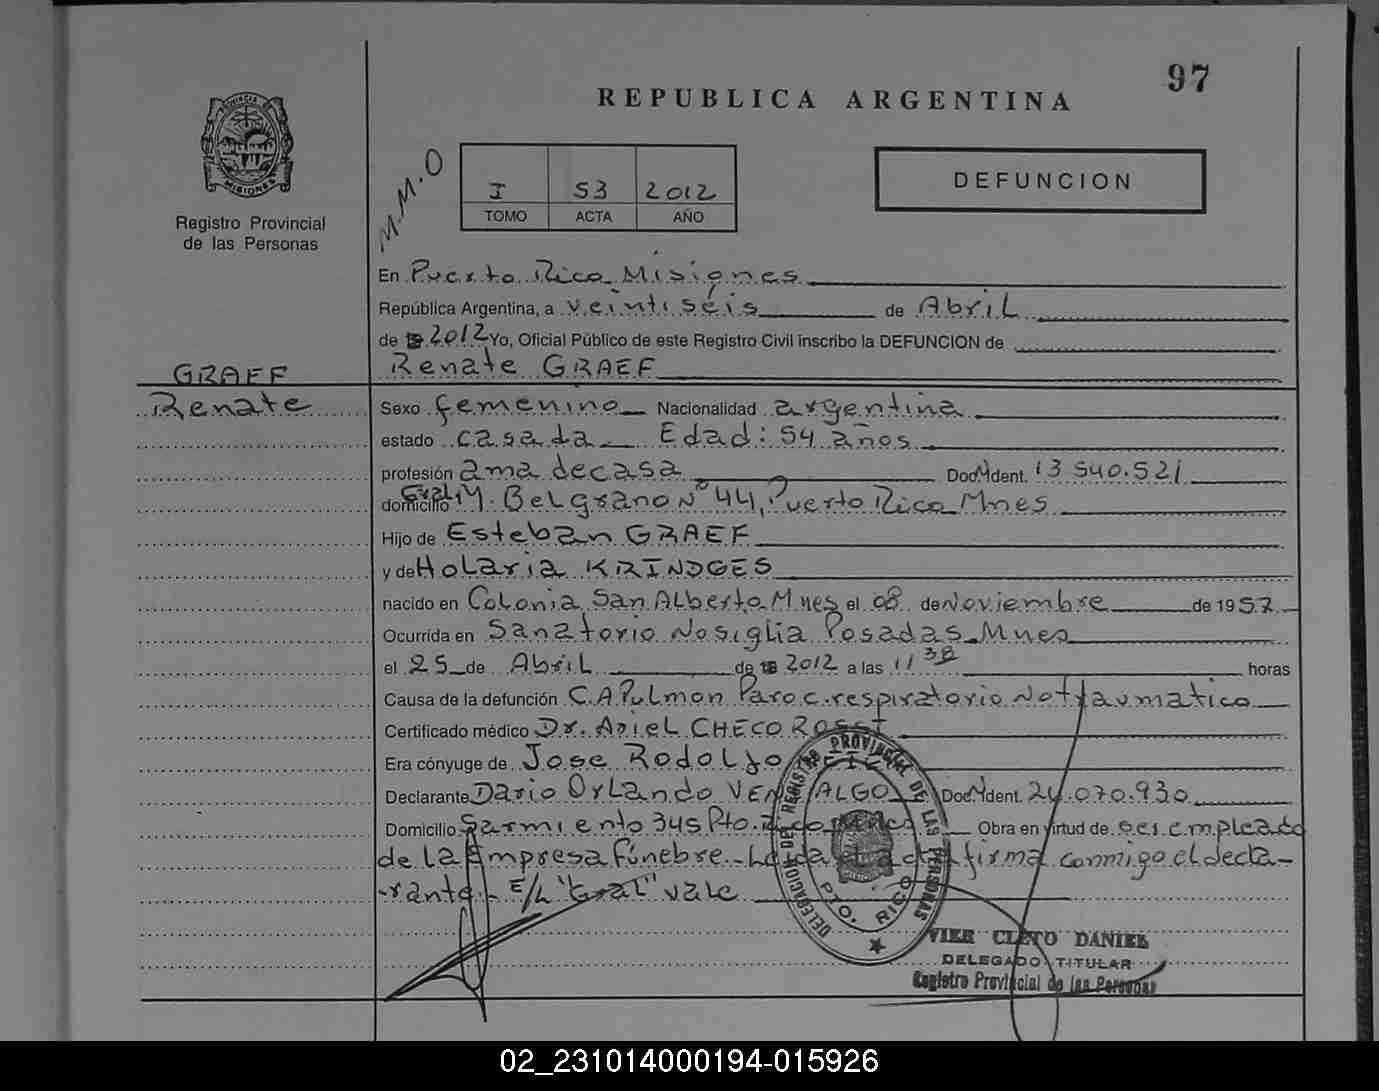 97
REPUBLICA ARGENTINA
PROVINCIA DE
MISIONES
Registro Provincial
de las Personas
M.M.O
I 53 2012
TOMO ACTA AÑO
DEFUNCION
En Puerto Rico Misiones
República Argentina, a veintiséis de Abril
de 2012 Yo, Oficial Público de este Registro Civil inscribo la DEFUNCION de
Renate GRAEF
GRAEF
Renate
Sexo femenino Nacionalidad argentina
estado casada Edad: 54 años
profesión ama de casa Doc. Ident. 13.540.521
domicilio Gral M. Belgrano Nº 44, Puerto Rico Mnes
Hijo de Esteban GRAEF
y de Holaria KRINDGES
nacido en Colonia San Alberto Mnes el 08 de Noviembre de 1957
Ocurrida en Sanatorio Nosiglia Posadas Mnes
el 25 de Abril de 2012 a las 11 38 horas
Causa de la defunción C.A Pulmon Paro c. respiratorio No traumatico
Certificado médico Dr. Ariel CHECO ROSSI
Era cónyuge de Jose Rodolfo
Declarante Dario Orlando Doc. Ident. 24.070.930
Domicilio Sarmiento 345 Pto. Rico Mnes Obra en virtud de ser empleado
de la Empresa Fúnebre.- Leida el acta firma conmigo el decla-
-rante.- E/L "Gral" vale
DELEGACION DEL REGISTRO PROVINCIAL DE LAS PERSONAS
PTO. RICO
VIER CLETO DANIEL
DELEGADO TITULAR
Registro Provincial de las Personas
02_231014000194-015926